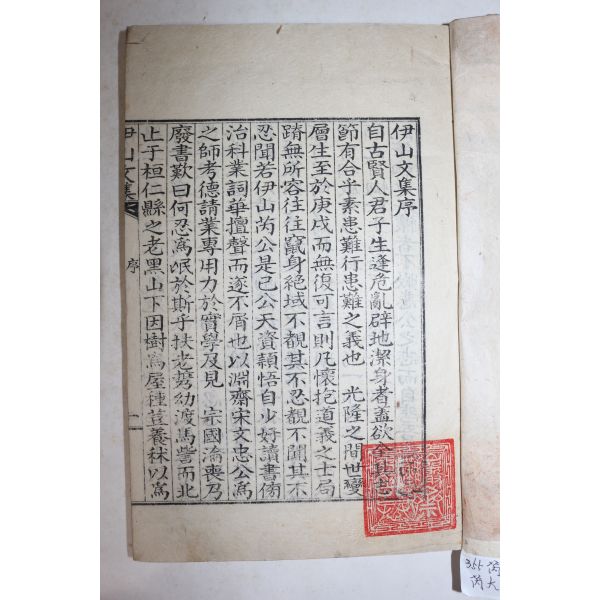 伊山文集序
自古賢人君子生逢危亂辟地潔身者蓋欲全其志
節有合乎素患難行患難之義也 光隆之間世變
層生至於庚戌而無復可言則凡懷抱道義之士局
蹐無所容往往竄身絶域不覩其不忍覩不聞其不
忍聞若伊山芮公是已公天資穎悟自少好讀書傍
治科業詞華擅聲而遂不屑也以淵齋宋文忠公爲
之師考德請業專用力於實學及見 宗國淪喪乃
廢書歎曰何忍爲氓於斯乎扶老㩗幼渡馬訾而北
止于桓仁縣之老黑山下因樹爲屋種荳養秫以爲
伊山文集
序
一
365 芮
芮大